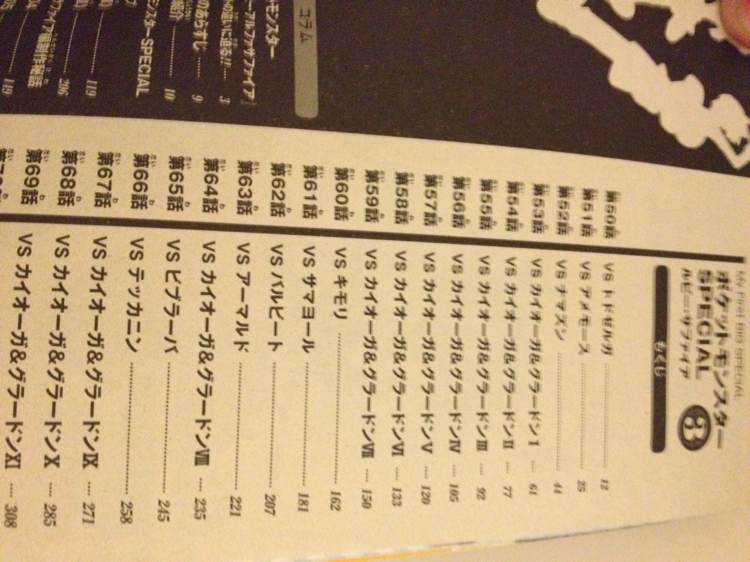 My First BIG SPECIAL
ポケットモンスター
SPECIAL
ルビー・サファイア 3
もくじ
第50話 VS トドゼルガ 12
第51話 VS アメモース 25
第52話 VS ナマズン 44
第53話 VS カイオーガ&グラードンⅠ 61
第54話 VS カイオーガ&グラードンⅡ 77
第55話 VS カイオーガ&グラードンⅢ 92
第56話 VS カイオーガ&グラードンⅣ 105
第57話 VS カイオーガ&グラードンⅤ 120
第58話 VS カイオーガ&グラードンⅥ 133
第59話 VS カイオーガ&グラードンⅦ 150
第60話 VS キモリ 162
第61話 VS サマヨール 181
第62話 VS バルビート 207
第63話 VS アーマルド 221
第64話 VS カイオーガ&グラードンⅧ 235
第65話 VS ビブラーバ 245
第66話 VS テッカニン 258
第67話 VS カイオーガ&グラードンⅨ 271
第68話 VS カイオーガ&グラードンⅩ 285
第69話 VS カイオーガ&グラードンⅪ 308
コラム
モンスター
アルファサファイア』
に迫る!! 3
のあらすじ 9
紹介 10
ンスターSPECIAL
119
206